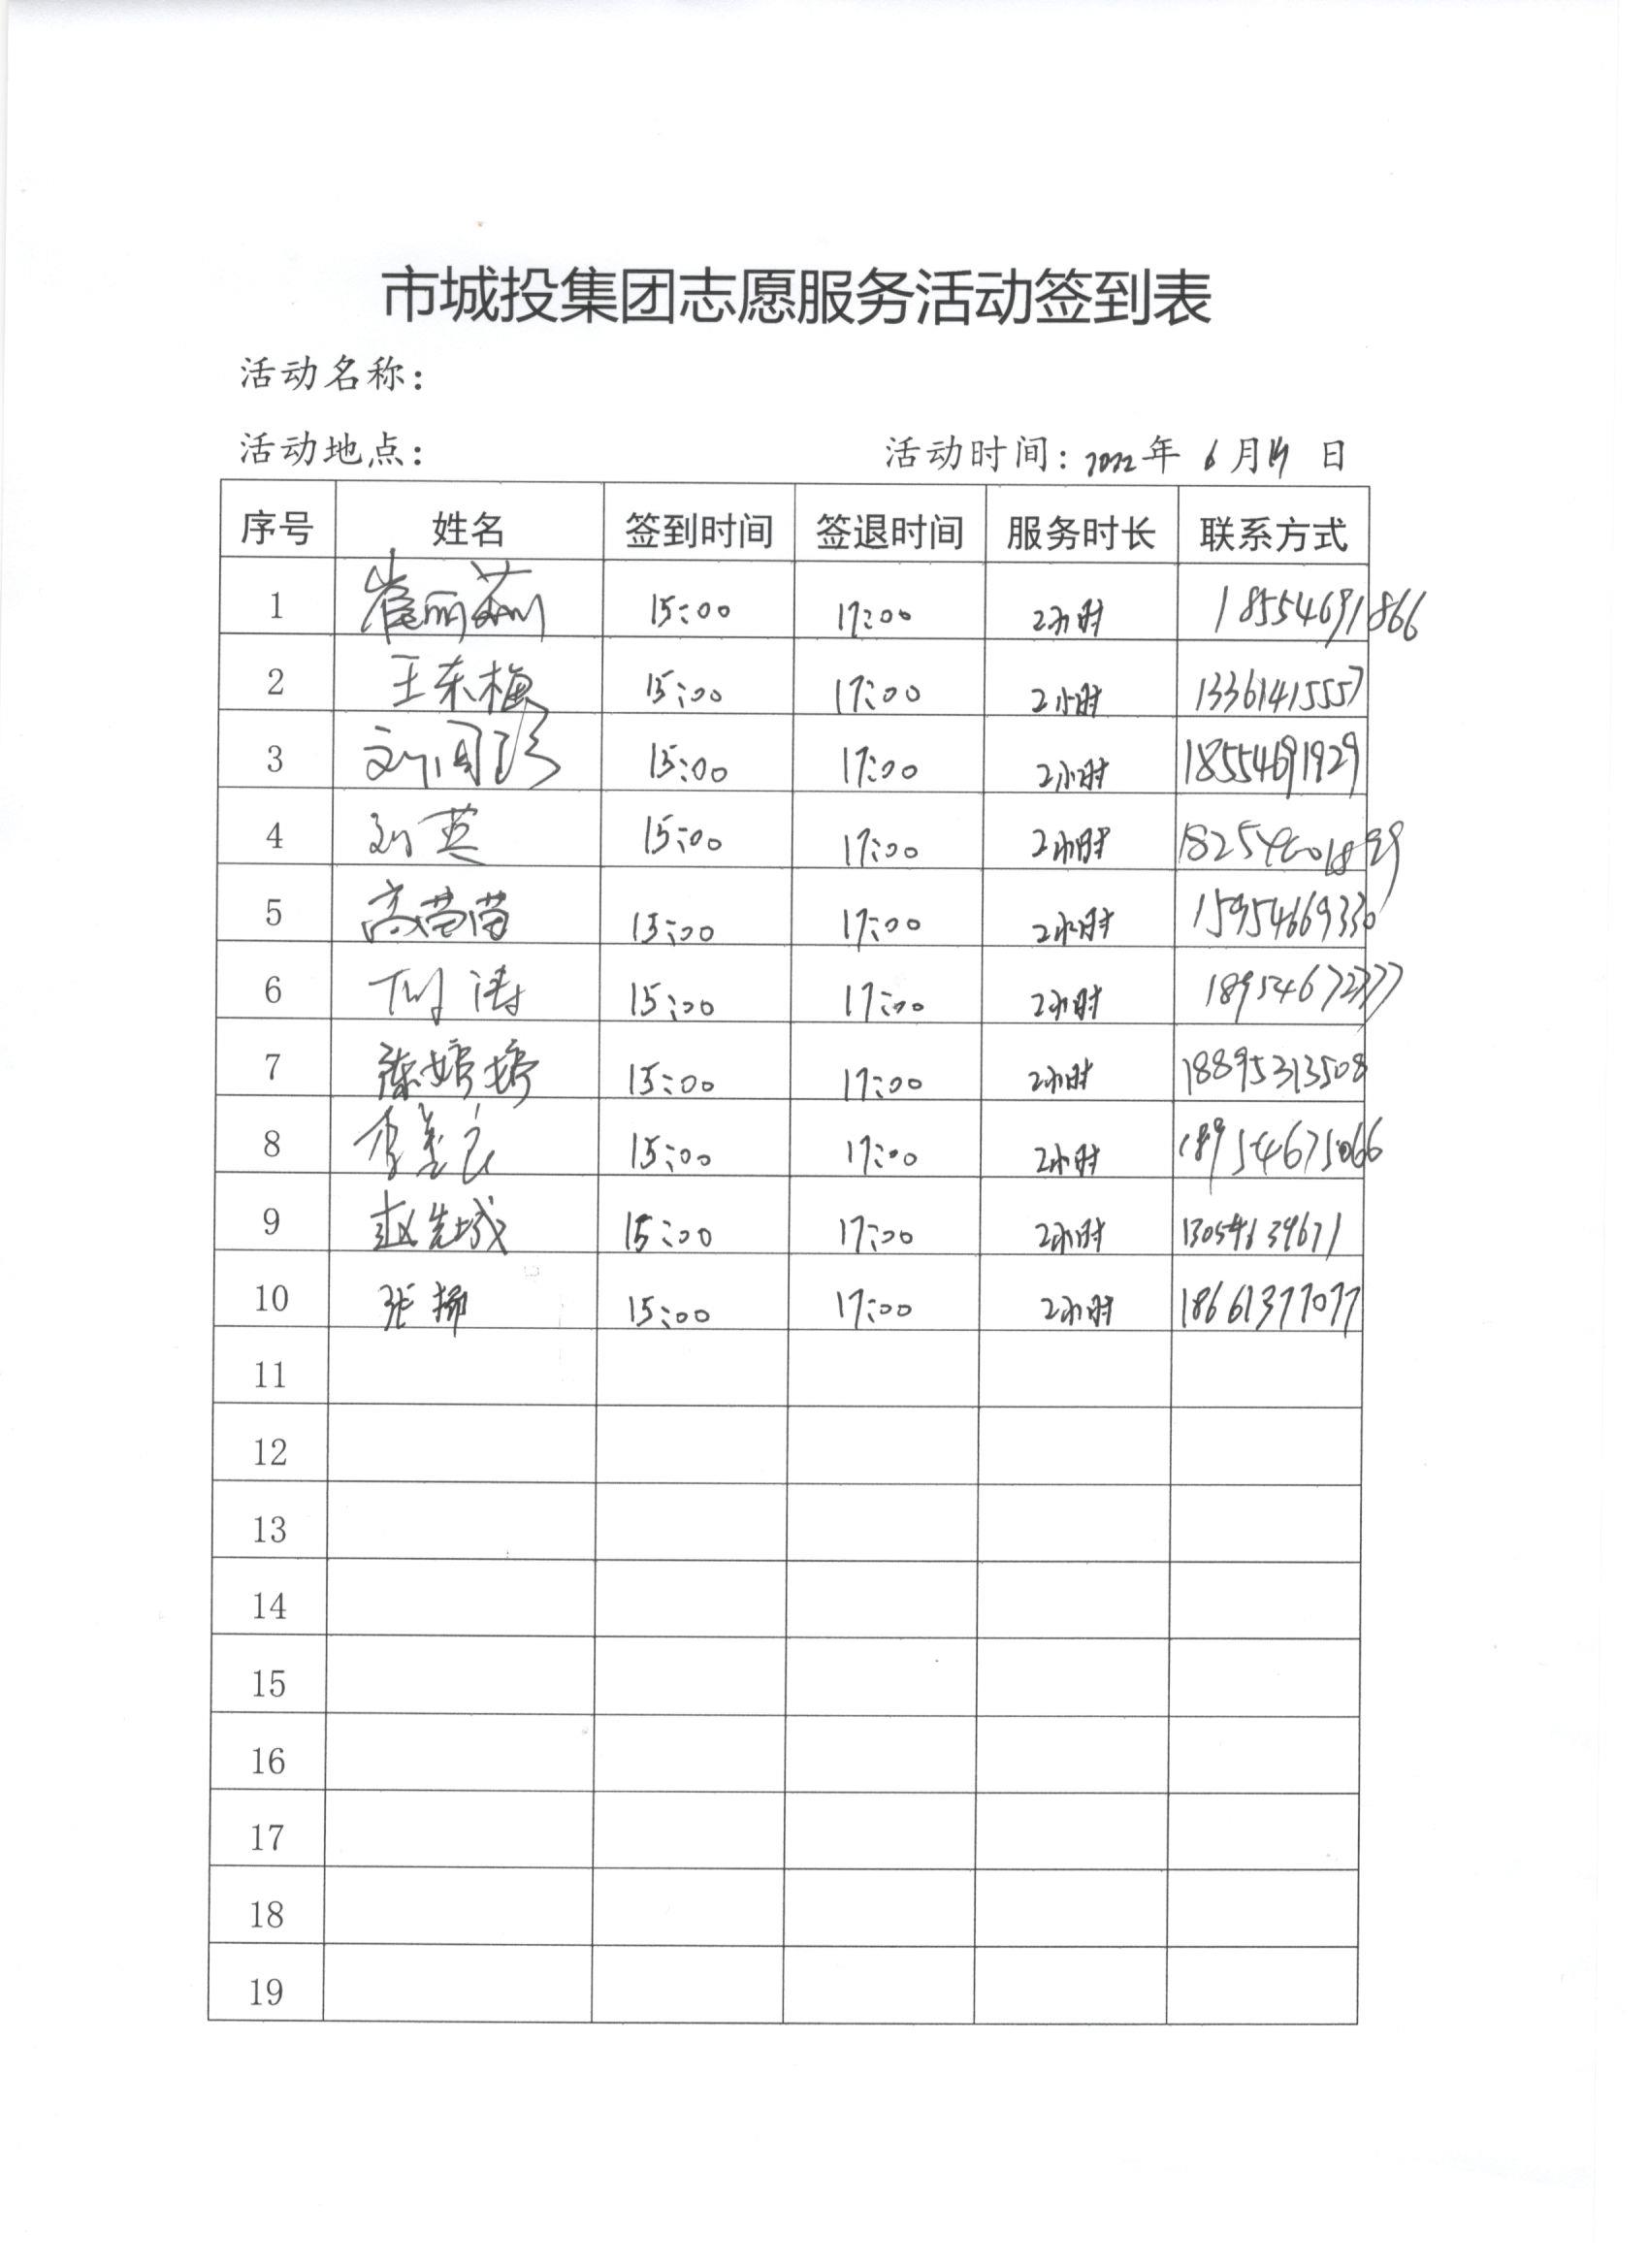 市城投集团志愿服务活动签到表
活动名称：
活动地点： 活动时间：2022年 6月 日
序号 姓名 签到时间 签退时间 服务时长 联系方式
1 崔丽莉 15:00 17:00 2小时 18554691866
2 王东梅 15:00 17:00 2小时 13361415557
3 刘国珍 15:00 17:00 2小时 18554691929
4 刘英 15:00 17:00 2小时
5 高苗苗 15:00 17:00 2小时 15954669330
6 涛 15:00 17:00 2小时 18954672777
7 陈婷婷 15:00 17:00 2小时 18895313508
8 李 15:00 17:00 2小时 18954675066
9 赵先城 15:00 17:00 2小时
10 张 15:00 17:00 2小时 18661377077
11
12
13
14
15
16
17
18
19